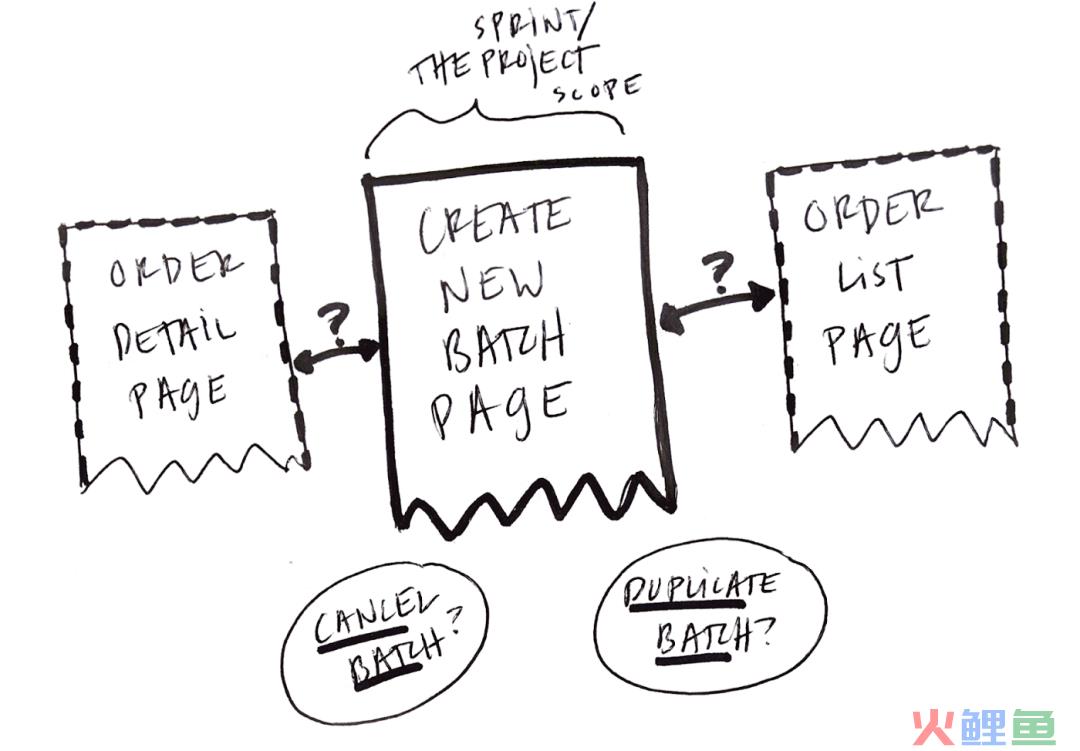 SPRINT/
THE PROJECT
SCOPE
ORDER
DETAIL
PAGE
?
CREATE
NEW
BATCH
PAGE
?
ORDER
LIST
PAGE
CANCEL
BATCH?
DUPLICATE
BATCH?
火鲤鱼